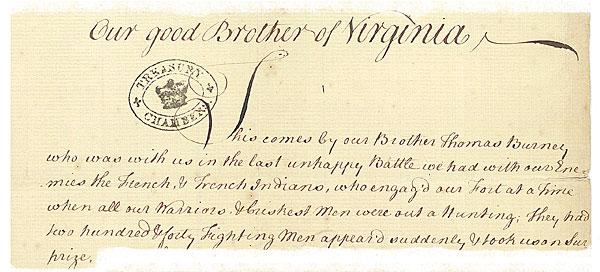 Our good Brother of Virginia
TREASURY
CHAMBERS
This comes by our Brother Thomas Burney
who was with us in the last unhappy Battle we had with our Ene-
mies the French, & French Indians, who engag'd our Fort at a Time
when all our Warriors & briskest Men were out a Hunting; They had
two hundred & forty Fighting Men appear'd suddenly & took us on Sur
prize.